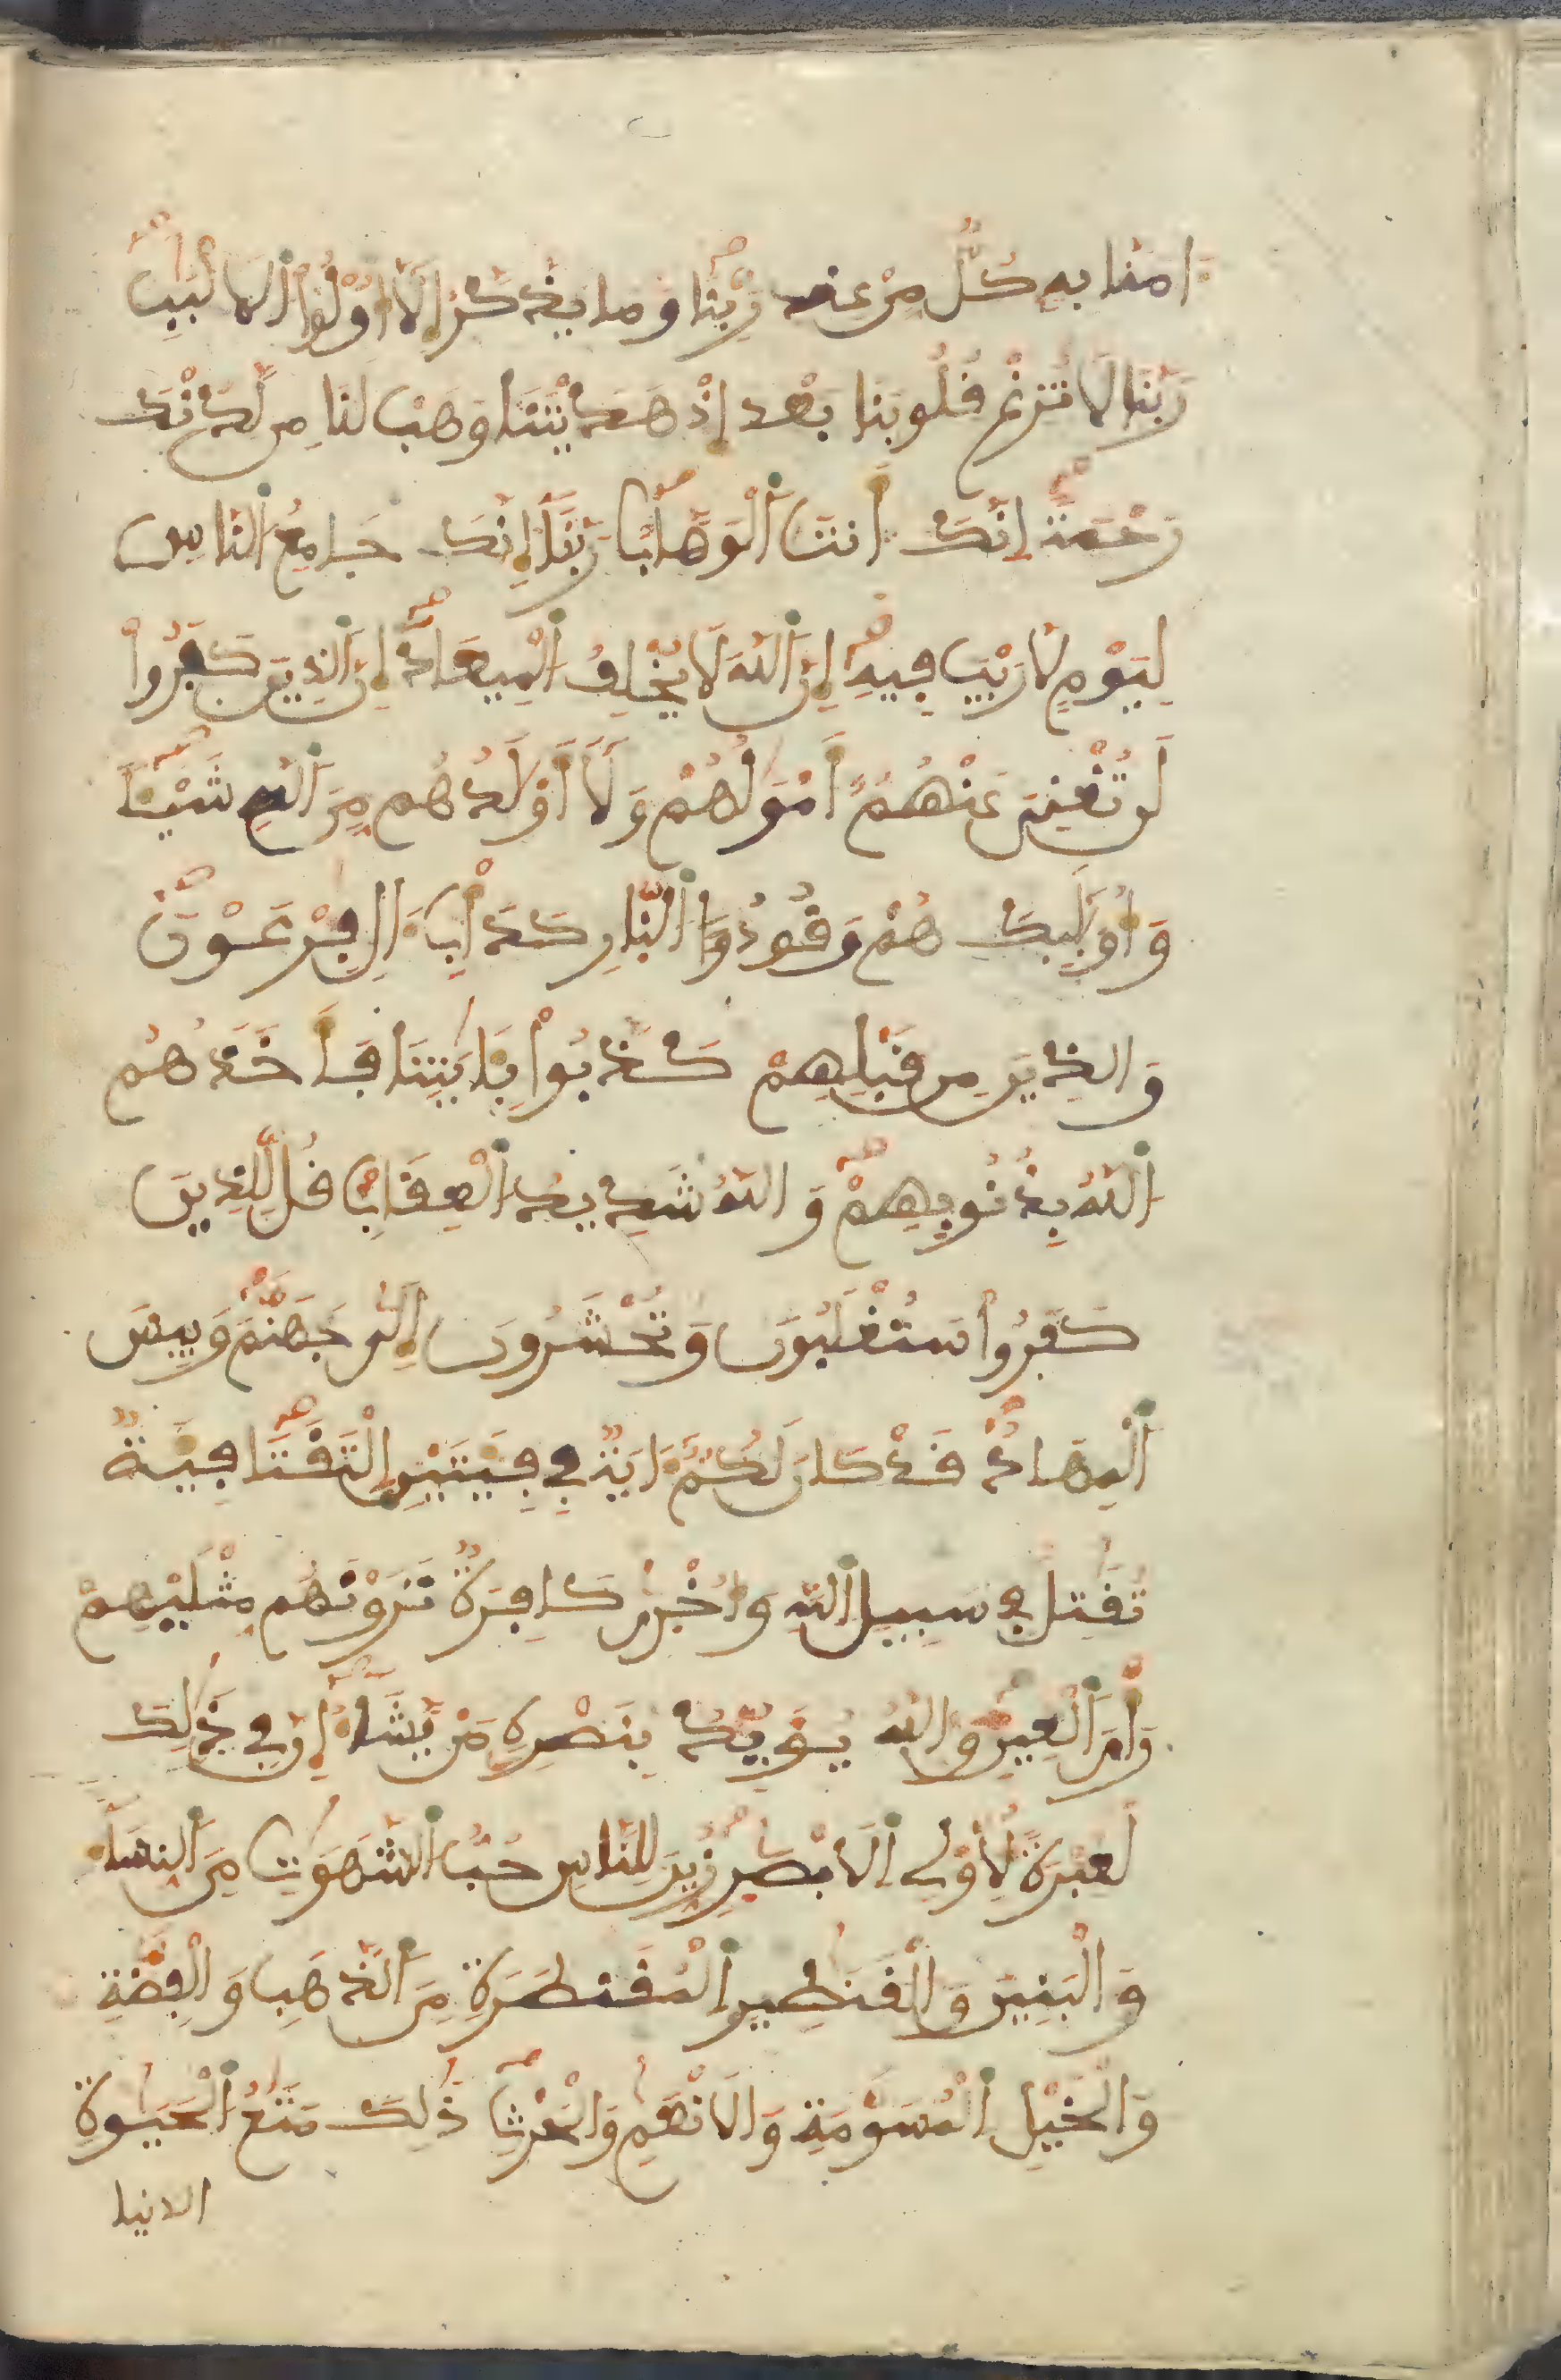 ءامنا به كُلٌّ مِّنْ عِند رَبِّنَا وما يذكرُ إِلَّا أُوْلُواْ الالبَبِ
رَبَّنَا لَا تُزِغْ قُلُوبنا بَعْد إِذْ هَدَيْتَنَا وَهَبْ لَنَا مِن لَّدُنْكَ
رَحْمَةً إِنَّكَ أَنتَ اَلْوَهَّابُ رَبَّنَا إِنَّكَ جَامِعُ اَلنَّاسِ
لِيَوْمٍ لَا رَيْبَ فِيهِ إِنَّ اَللَّهَ لَا يُخْلِفُ اَلْمِيعَادَ إِنَّ اَلذِينَ كَفَرُواْ
لَن تُغْنِيَ عَنْهُمُ أَمْوَلُهُمْ وَلَا أَوْلَدُهُم مِّنَ اَللَّهِ شَيْئاً
وَأُوْلَئِكَ هُمْ وَقُودُ اَلنَّارِ كَدَأْبِ ءَالِ فِرْعَوْنَ
وَالذِينَ مِن قَبْلِهِمْ كَذَّبُواْ بِئَايَتِنَا فَأَخَذَهُم
اَللَّهُ بِذُنُوبِهِمْ وَاللَّهُ شَدِيدُ اَلْعِقَابِ قُل لِّلَّذِينَ
كَفَرُواْ سَتُغْلَبُونَ وَتُحْشَرُونَ إِلَى جَهَنَّمَ وَبِيسَ
اَلْمِهَادُ قَدْ كَانَ لَكُمُ ءَايَةٌ فِي فِئَتَيْنِ اِلْتَقَتَا فِئَةٌ
تُقَتِلُ فِي سَبِيلِ اِللَّهِ وَأُخْرَى كَافِرَةٌ تَرَوْنَهُم مِّثْلَيْهِمْ
رَأْيَ اَلْعَيْنِ وَاللَّهُ يُؤَيِّدُ بِنَصْرِهِ مَنْ يَّشَاءُ إِنَّ فِي ذَلِكَ
لَعِبْرَةً لِّأُوْلِي اِلَابْصَرِ زُيِّنَ لِلنَّاسِ حُبُّ اُلشَّهَوَتِ مِنَ اَلنِّسَاءِ
وَالْبَنِينَ وَالْقَنَطِيرِ اِلْمُقَنطَرَةِ مِنَ اَلذَّهَبِ وَالْفِضَّةِ
وَالْخَيْلِ اِلْمُسَوَّمَةِ وَالَانْعَمِ وَالْحَرْثِ ذَلِكَ مَتَعُ اُلْحَيَوةِ
الدنيا